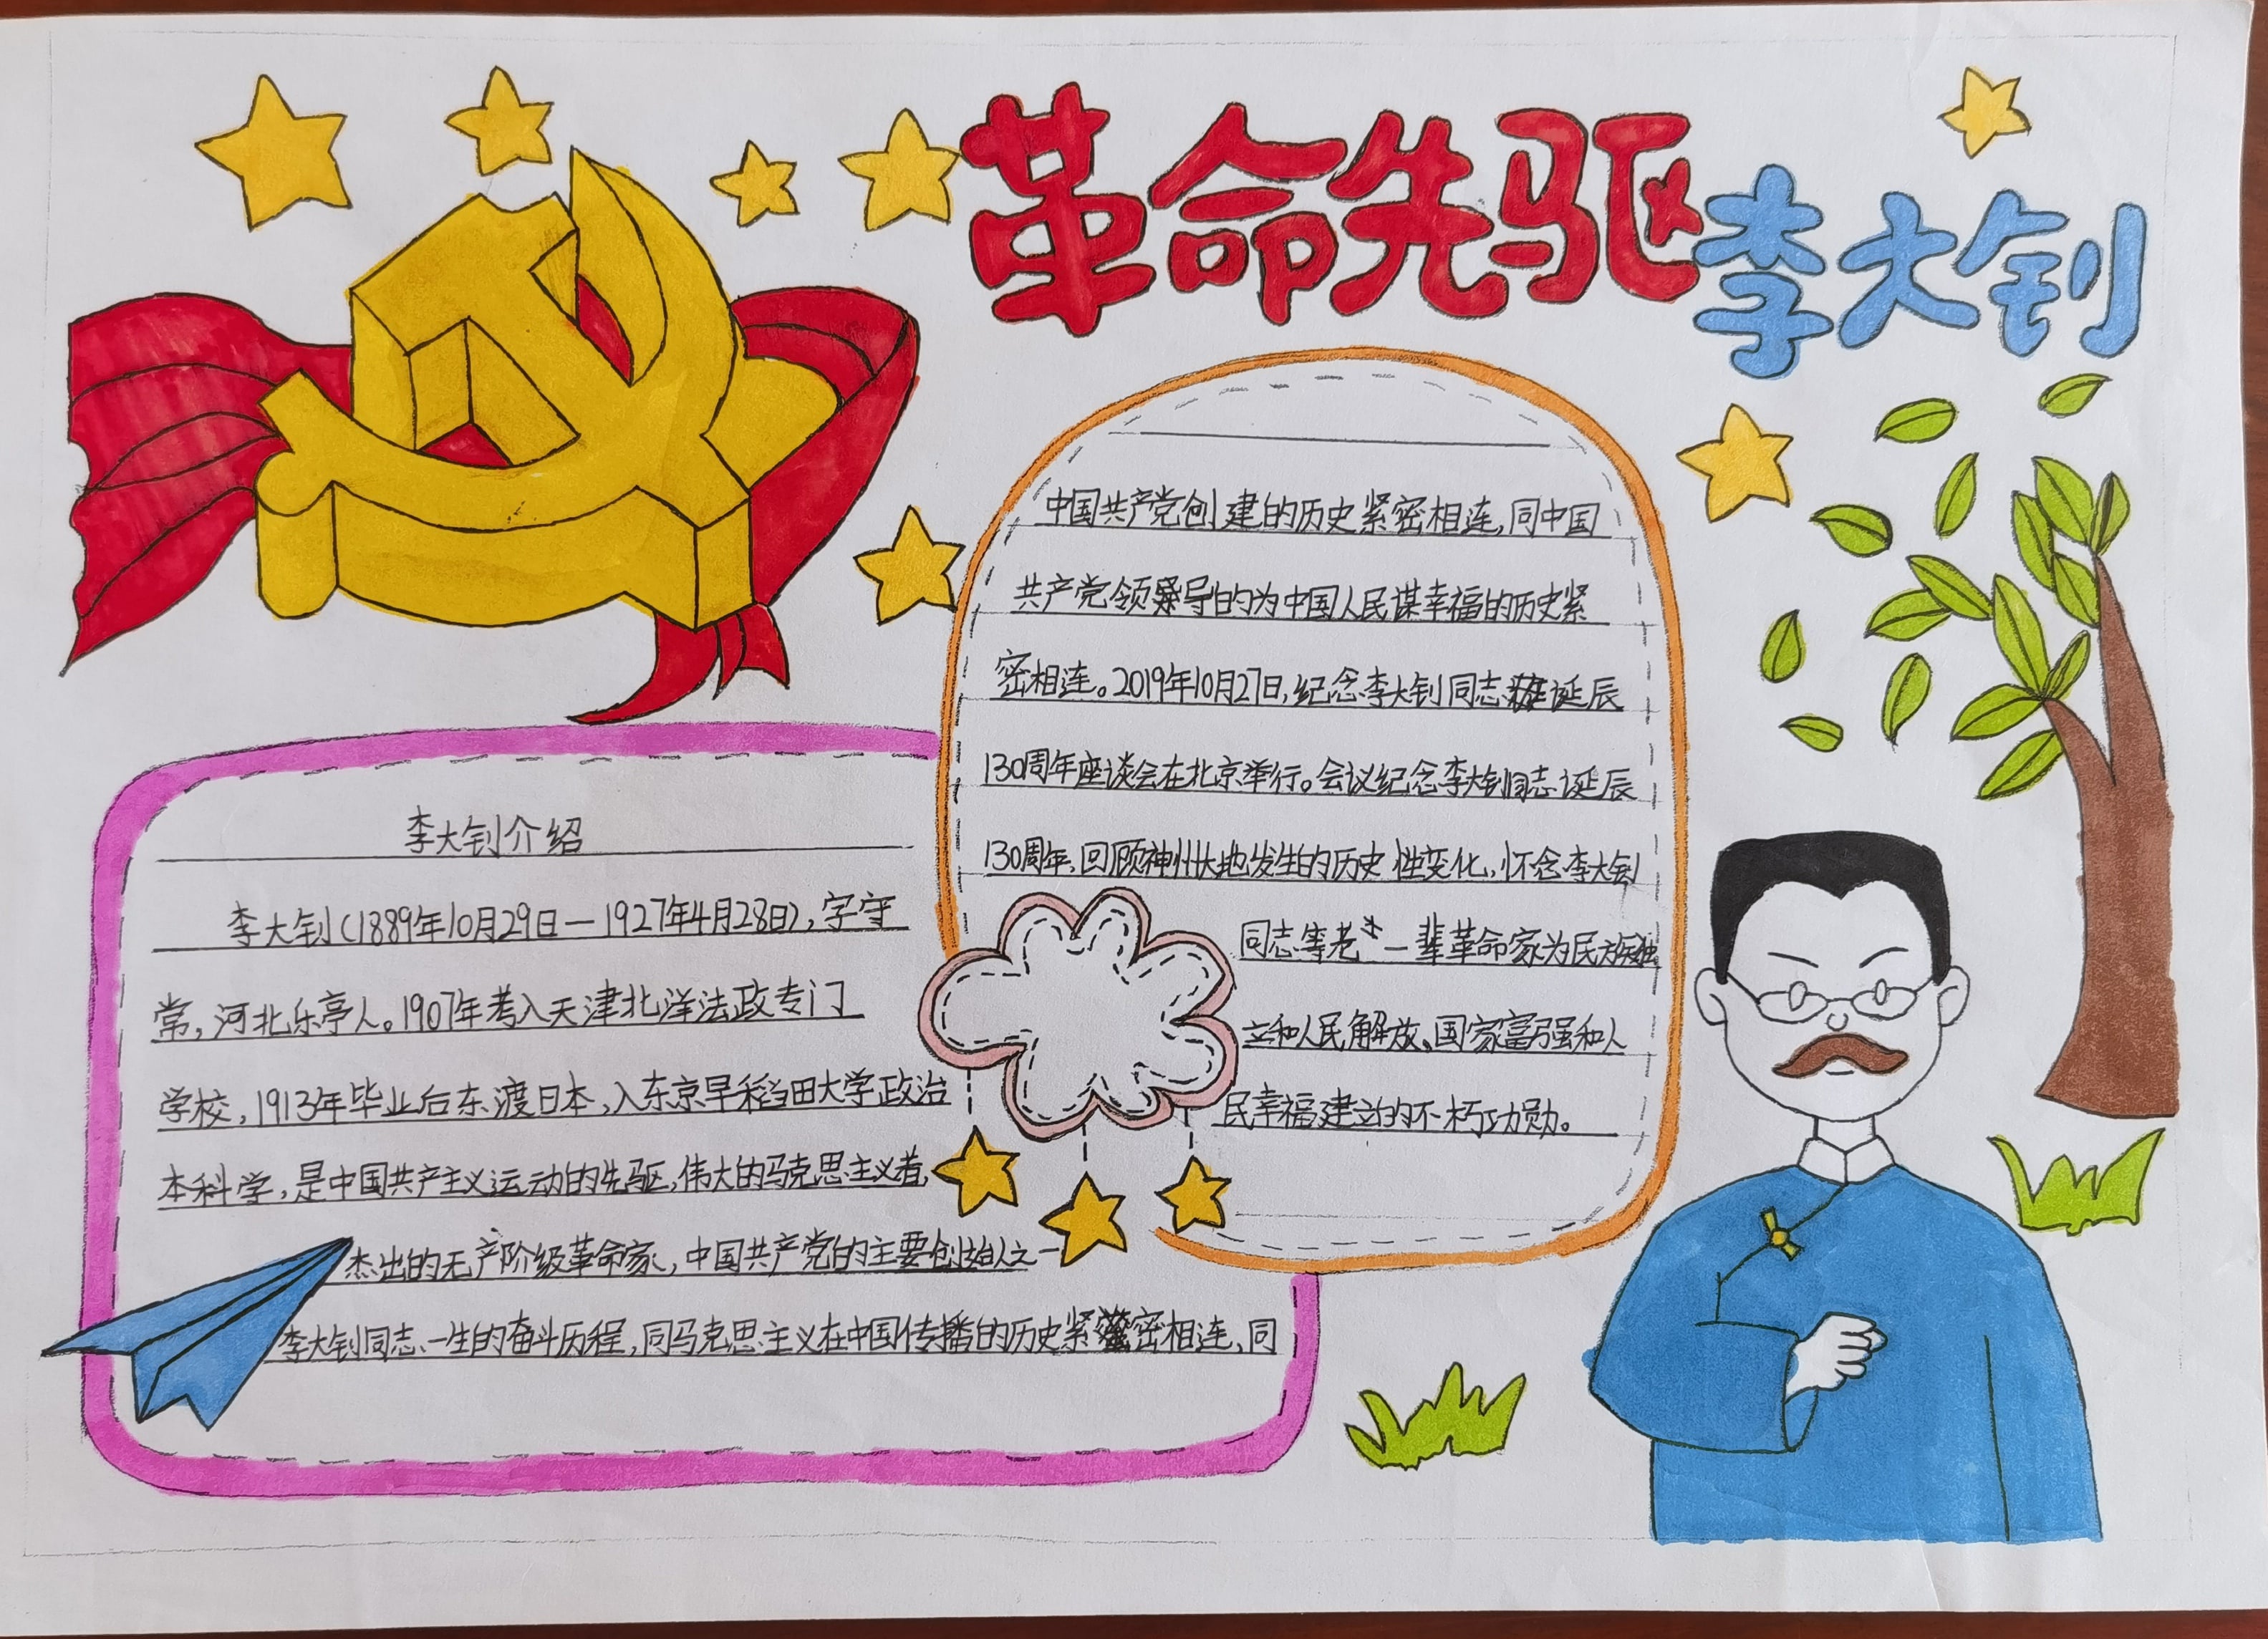 革命先驱李大钊
李大钊介绍
李大钊(1889年10月29日—1927年4月28日),字守
常,河北乐亭人。1907年考入天津北洋法政专门
学校,1913年毕业后东渡日本,入东京早稻田大学政治
本科学,是中国共产主义运动的先驱,伟大的马克思主义者,
杰出的无产阶级革命家,中国共产党的主要创始人之一
李大钊同志一生的奋斗历程,同马克思主义在中国传播的历史紧密相连、同
中国共产党创建的历史紧密相连,同中国
共产党领导的为中国人民谋幸福的历史紧
密相连。2019年10月27日,纪念李大钊同志诞辰
130周年座谈会在北京举行。会议纪念李大钊同志诞辰
130周年,回顾神州大地发生的历史性变化,怀念李大钊
同志等老一辈革命家为民族独
立和人民解放、国家富强和人
民幸福建立的不朽功勋。